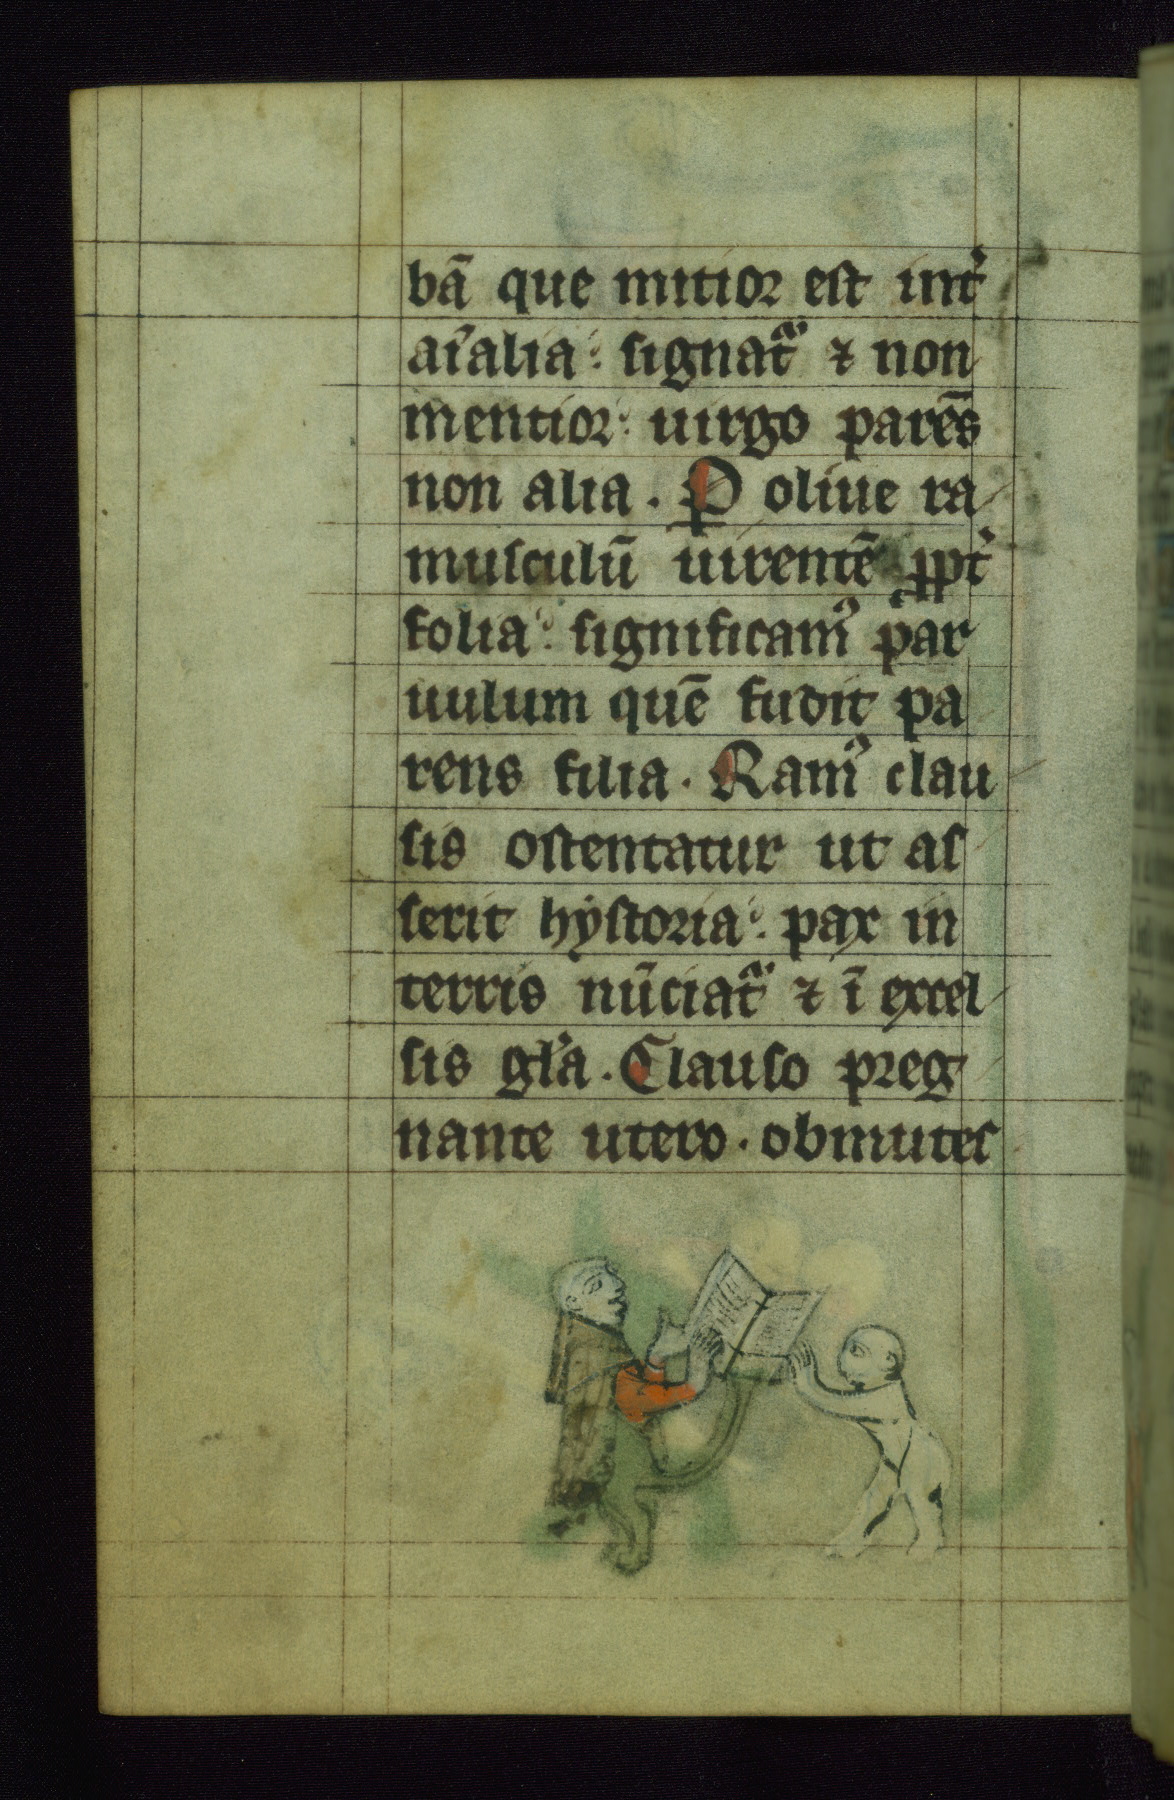 bā que mitior est intᷣ
aıᷣalia. signat᷑ ⁊ non
mentior. uirgo parēs
non alia. P oliue ra
musculū uirentē ꝓptᷣ
folia. significamꝰ par
uulum quē fudit pa
rens filia. Ramꝰ clau
sis ostentatur ut as
serit hẏstoria. pax in
terris nūciat᷑ ⁊ ī excel
sis gl᷑a. Clauso preg
nante utero. obmutes